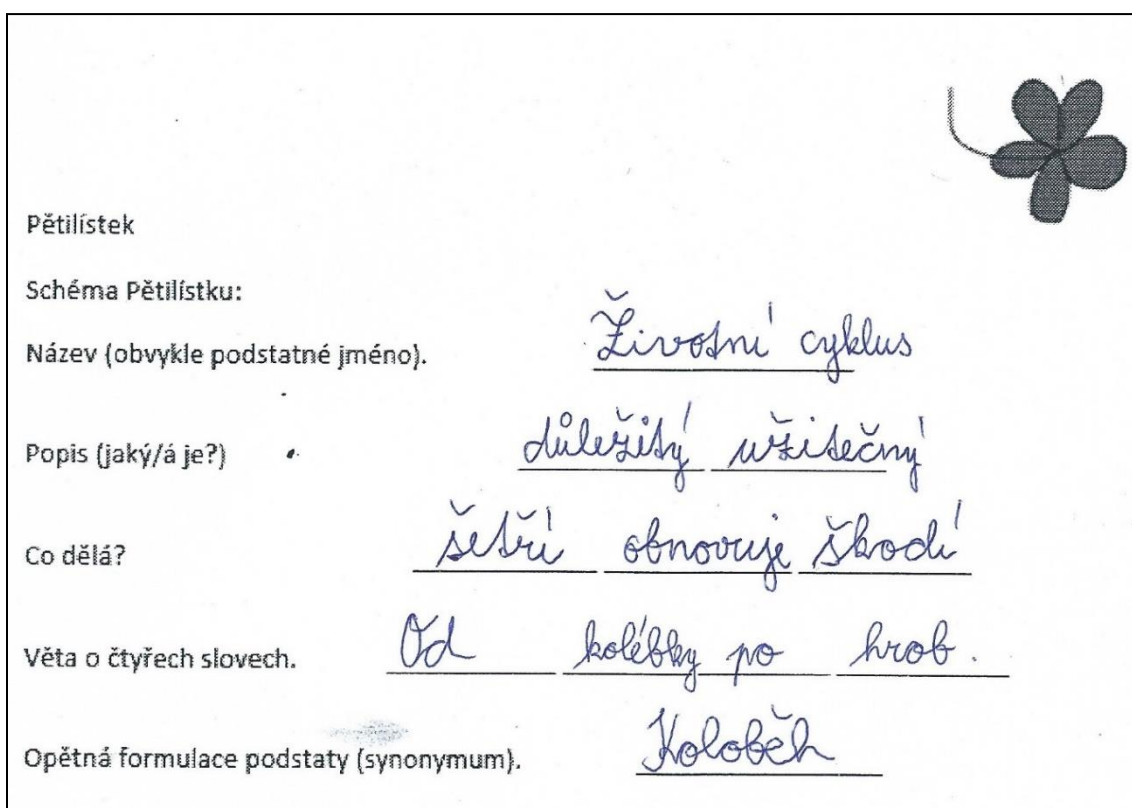 Pětilístek
Schéma Pětilístku:
Název (obvykle podstatné jméno). Životní cyklus
Popis (jaký/á je?) důležitý užitečný
Co dělá? šetří obnovuje škodí
Věta o čtyřech slovech. Od kolébky po hrob.
Opětná formulace podstaty (synonymum). Koloběh